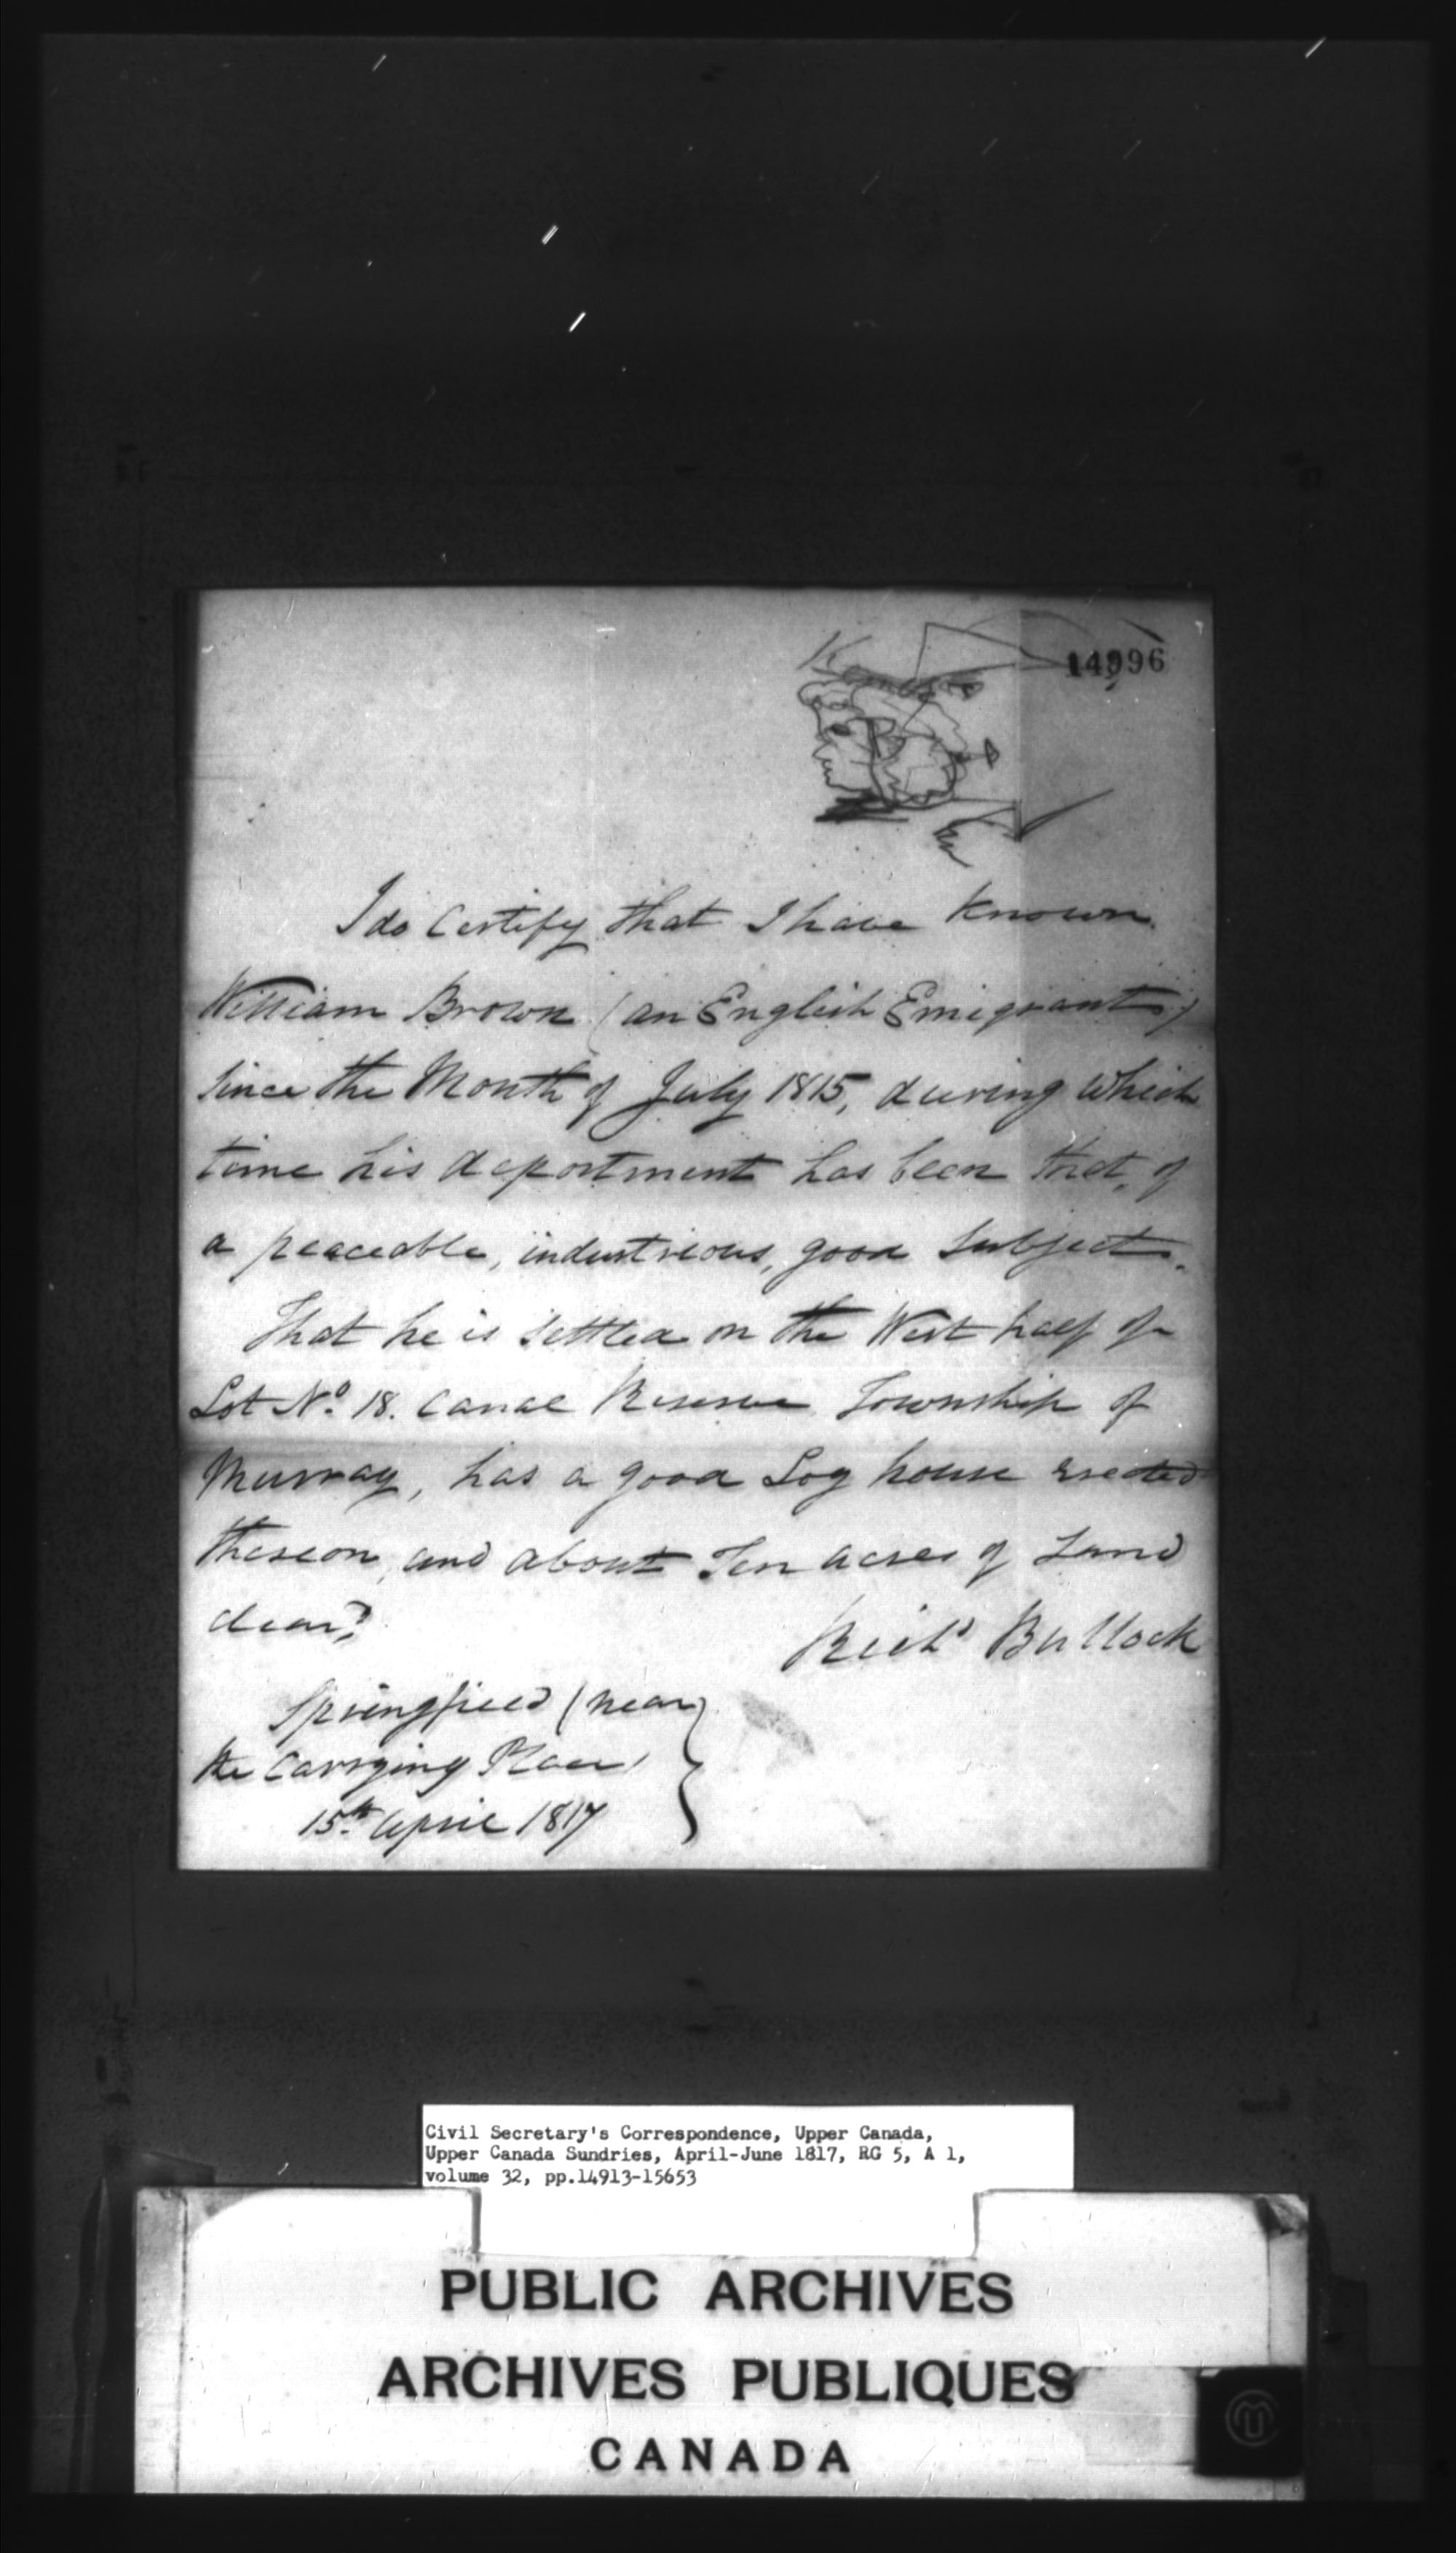 14996
I do Certify that I have known
William Brown (an English Emigrant)
since the Month of July 1815, during which
time his deportment has been that, of
a peaceable, industrious, good Subject.
That he is settled on the West half of
Lot No. 18. Canal Reserve Township of
Murray, has a good Log house erected
thereon, and about Ten acres of Land
clear'd.
Richd Bullock
Springfield (near
the Carrying Place)
15th April 1817
Civil Secretary's Correspondence, Upper Canada,
Upper Canada Sundries, April-June 1817, RG 5, A 1,
volume 32, pp.14913-15653
PUBLIC ARCHIVES
ARCHIVES PUBLIQUES
CANADA